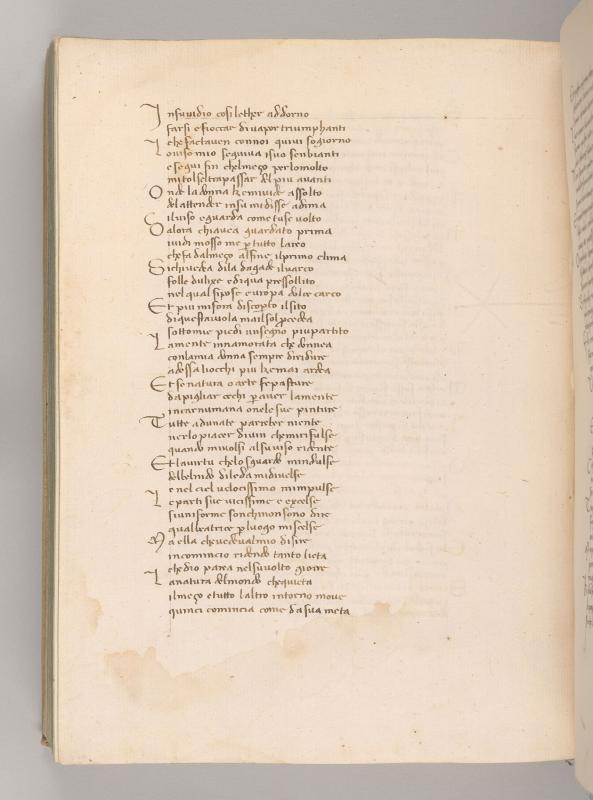 I nsu vidio cosi lether addorno
farsi e fioccar di vapor triumphanti
I che factaven con noi quivi sogiorno
L o viso mio seguiva i suo senbianti
e segui fin chel meço per lo molto
mi tolsel trapassar del piu avanti
O nde la donna che mi vide assolto
del attender in su mi disse adima
il viso e guarda come tu se volto
D alora chiavea guardato prima
i vidi mosso me p tutto larco
che fa dal meço al fine il primo clima
S i chi vedea di la da gade il varco
folle dulixe e di qua presso llito
nel qual si pose europa dolce carco
E t piu mi fora discoperto il sito
di questa aiuola ma il sol procedea
sotto mie piedi un segno piu partito
L a mente innamorata che donnea
con la mia donna sempre di ridure
adessa li occhi piu che mai ardea
E t se natura o arte fe pasture
da pigliar ochi p aver la mente
in carn umana o nele sue pinture
T utte adunate parrebber niente
ver lo piacer divin che mi rifulse
quando mi volsi al suo viso ridente
E t la virtu che lo sguardo mindulse
del bel nido di leda mi divelse
e nel ciel velocissimo mimpulse
L e parti sue vicissime e excelse
si uniforme son chi non so dire
qual beatrice p luogo mi scelse
M a ella che vedeva l mio disire
incomincio ridendo tanto lieta
che dio parea nel su volto gioire
L a natura del mondo che quieta
il meço e tutto laltro intorno move
quinci comincia come da sua meta